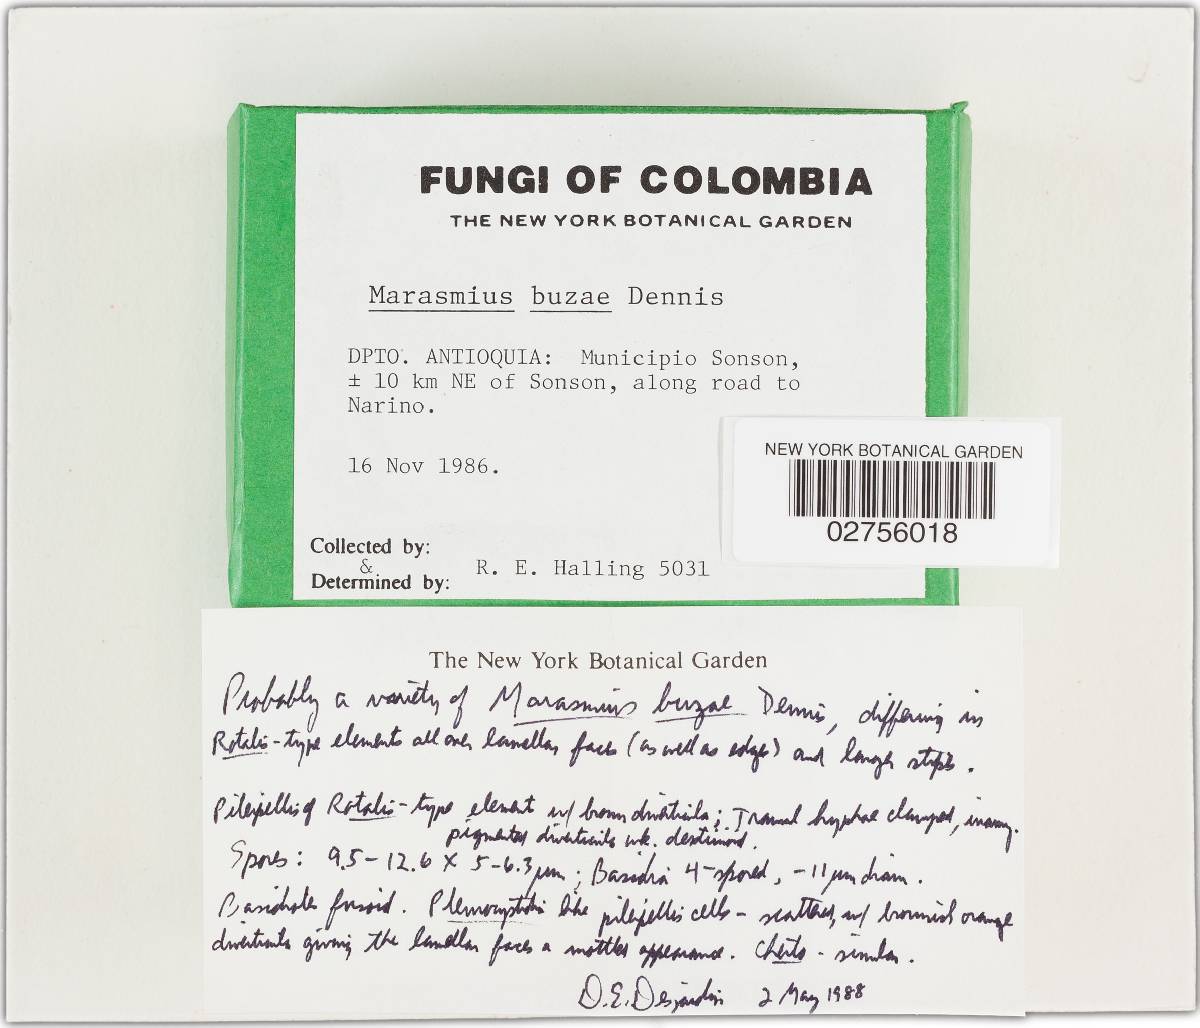 FUNGI OF COLOMBIA
THE NEW YORK BOTANICAL GARDEN
Marasmius buzae Dennis
DPTO. ANTIOQUIA: Municipio Sonson,
± 10 km NE of Sonson, along road to
Narino.
16 Nov 1986.
NEW YORK BOTANICAL GARDEN
02756018
Collected by:
&
Determined by:
R. E. Halling 5031
The New York Botanical Garden
Probably a variety of Marasmius buzae Dennis, differing in
Rotalis-type elements all over lamellar faces (as well as edges) and longer stipe.
Pileipellis of Rotalis-type element w/ brown diverticula; Tramal hyphae clamped, inamy.
pigmented diverticula wk. dextrinoid.
Spores: 9.5-12.6 X 5-6.3 µm; Basidia 4-spored, -11 µm diam.
Basidioles fusoid. Pleurocystidia like pileipellis cells - scattered, w/ brownish orange
diverticula giving the lamellar faces a mottled appearance. Cheilo - similar.
D.E. Desjardin 2 May 1988